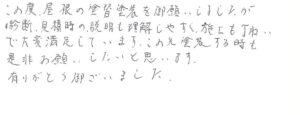 この度、屋根の塗替塗装を御願いしましたが
診断、見積時の説明も理解しやすく、施工も丁ねい
で大変満足しています。この先塗装する時も
是非お願いしたいと思います。
有りがとう御ございました。